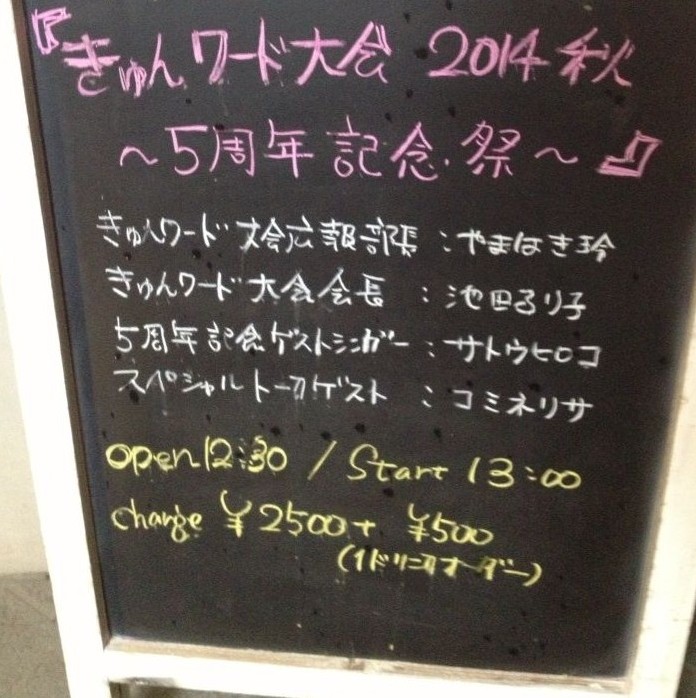 『きゅんワード大会 2014 秋
～5周年記念祭～』
きゅんワード大会広報部長：やまはき玲
きゅんワード大会会長：池田るり子
5周年記念ゲストシンガー：サトウヒロコ
スペシャルトークゲスト：コミネリサ
open 12:30 / Start 13:00
charge ¥2500+ ¥500
(1ドリンクオーダー)